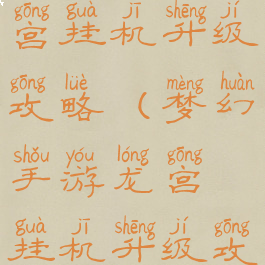 gōng guà jī shēng jí
宫挂机升级
gōng lüè mèng huàn
攻略（梦幻
shǒu yóu lóng gōng
手游龙宫
guà jī shēng jí gōng
挂机升级攻